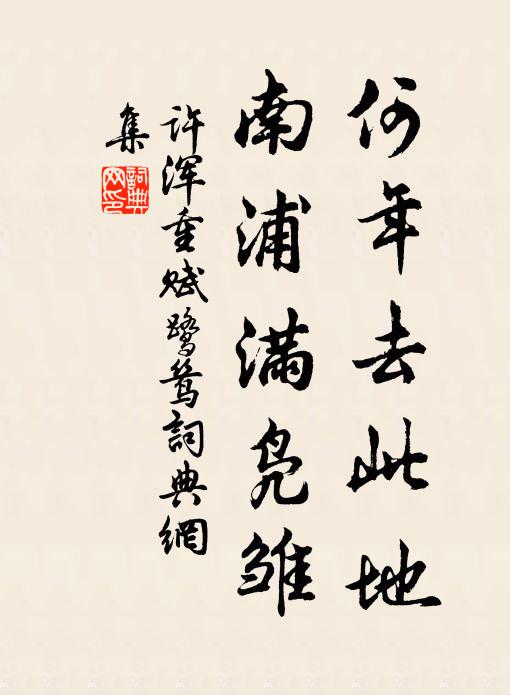 何年去此地
南浦满凫雏
许浑重赋鹭鸶詞典網
集
詞典网印